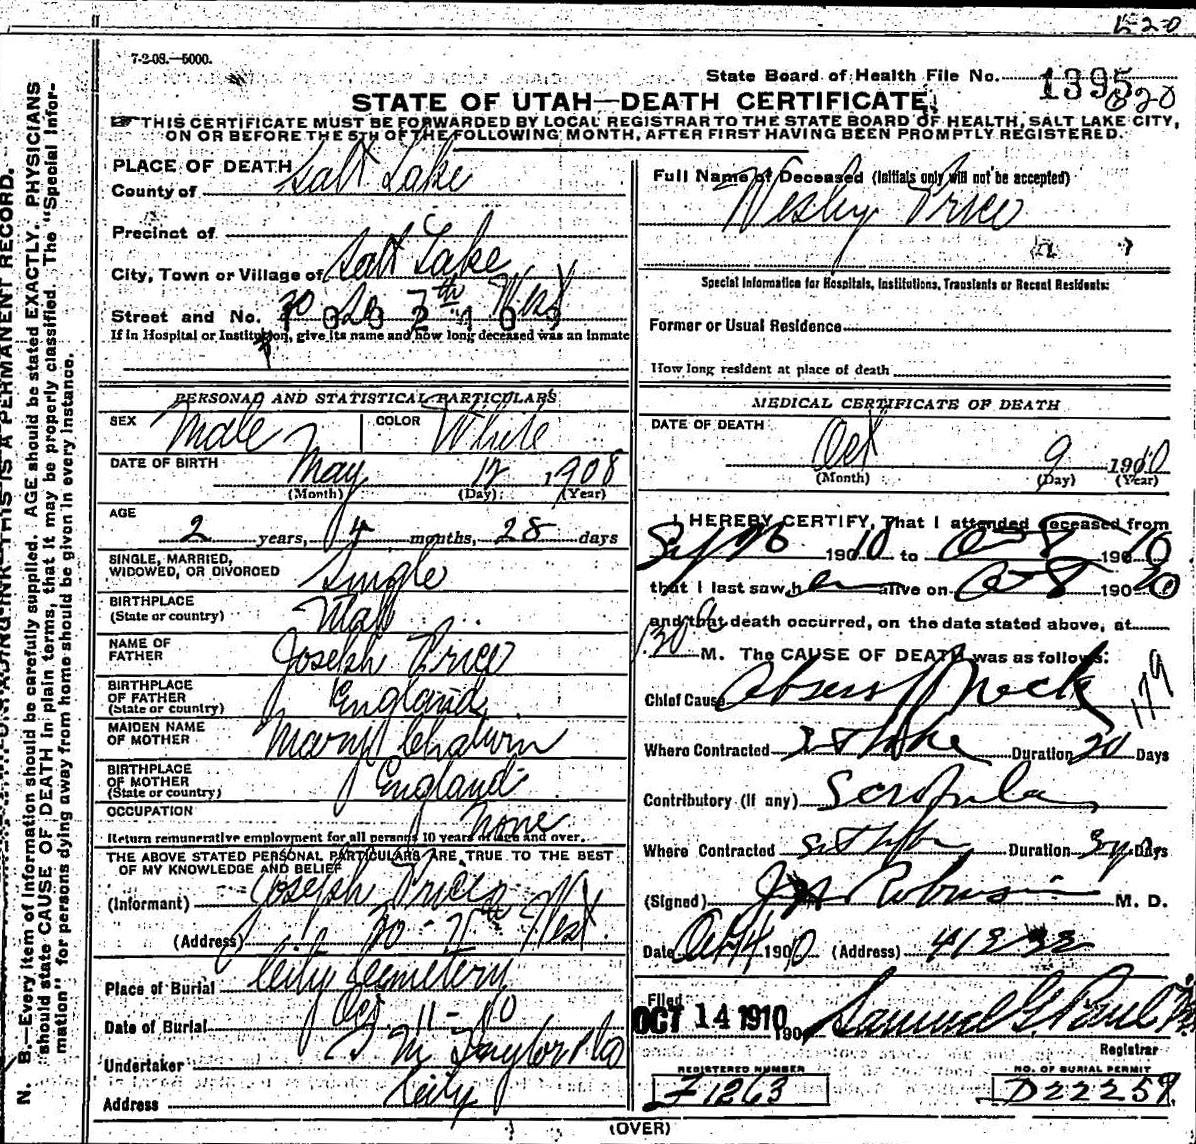 620
7-2-08.—5000.
State Board of Health File No. 1395
620
STATE OF UTAH—DEATH CERTIFICATE
THIS CERTIFICATE MUST BE FORWARDED BY LOCAL REGISTRAR TO THE STATE BOARD OF HEALTH, SALT LAKE CITY,
ON OR BEFORE THE 5TH OF THE FOLLOWING MONTH, AFTER FIRST HAVING BEEN PROMPTLY REGISTERED.
N. B.—Every item of information should be carefully supplied. AGE should be stated EXACTLY. PHYSICIANS
should state CAUSE OF DEATH in plain terms, that it may be properly classified. The "Special Infor-
mation" for persons dying away from home should be given in every instance.
PLACE OF DEATH
County of Salt Lake
Precinct of
City, Town or Village of Salt Lake
Street and No. 30 So 7th West
If in Hospital or Institution, give its name and how long deceased was an inmate
PERSONAL AND STATISTICAL PARTICULARS
SEX Male COLOR White
DATE OF BIRTH May 12 1908
(Month) (Day) (Year)
AGE
2 years, 4 months, 28 days
SINGLE, MARRIED,
WIDOWED, OR DIVORCED Single
BIRTHPLACE
(State or country)
NAME OF
FATHER Joseph Price
BIRTHPLACE
OF FATHER
(State or country) England
MAIDEN NAME
OF MOTHER Mary
BIRTHPLACE
OF MOTHER
(State or country) England
OCCUPATION None
Return remunerative employment for all persons 10 years of age and over.
THE ABOVE STATED PERSONAL PARTICULARS ARE TRUE TO THE BEST
OF MY KNOWLEDGE AND BELIEF
(Informant) Joseph Price
(Address) 30 - 7th West
Place of Burial City Cemetery
Date of Burial Oct 11 - 10
Undertaker S M Taylor & Co
Address City
Full Name of Deceased (Initials only will not be accepted)
Wesley Price
Special Information for Hospitals, Institutions, Transients or Recent Residents:
Former or Usual Residence
How long resident at place of death
MEDICAL CERTIFICATE OF DEATH
DATE OF DEATH
Oct 9 1910
(Month) (Day) (Year)
I HEREBY CERTIFY, That I attended deceased from
190 10 to Oct 8 190 10
that I last saw h alive on Oct 8 190 10
and that death occurred, on the date stated above, at
130 M. The CAUSE OF DEATH was as follows:
Chief Cause Abscess Neck
179
Where Contracted S Lake Duration 20 Days
Contributory (If any) Scrofula
Where Contracted Duration 3 Days
(Signed) Robinson M. D.
Date Oct 14 1910 (Address)
Filed
OCT 14 1910 190 Samuel G. Paul
Registrar
REGISTERED NUMBER
F1263
NO. OF BURIAL PERMIT
D22259
(OVER)